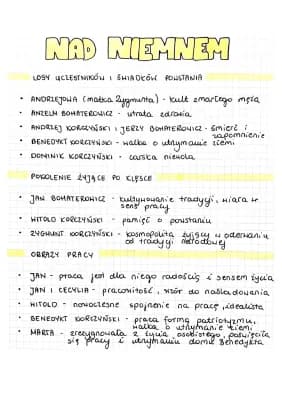 NAD NIEMNEM
LOSY UCZESTNIKÓW I ŚWIADKÓW POWSTANIA
• ANDRZEJOWA (matka Zygmunta) - kult zmarłego męża
• ANZELM BOHATEROWICZ - utrata zdrowia
• ANDRZEJ KORCZYŃSKI i JERZY BOHATEROWICZ - śmierć i zapomnienie
• BENEDYKT KORCZYŃSKI - walka o utrzymanie ziemi
• DOMINIK KORCZYŃSKI - carska niewola
POKOLENIE ŻYJĄCE PO KLĘSCE
• JAN BOHATEROWICZ - kultywowanie tradycji, wiara w
sens pracy
• WITOLD KORCZYŃSKI - pamięć o powstaniu
• ZYGMUNT KORCZYŃSKI - kosmopolita żyjący w oderwaniu
od tradycji narodowej
OBRAZY PRACY
• JAN - praca jest dla niego radością i sensem życia
• JAN I CECYLIA - pracowitość, wzór do naśladowania
• WITOLD - nowoczesne spojrzenie na pracę, idealista
• BENEDYKT KORCZYŃSKI - praca formą patriotyzmu,
walka o utrzymanie ziemi
• MARTA - zrezygnowała z życia osobistego, poświęciła
się pracy i utrzymaniu domu Benedykta